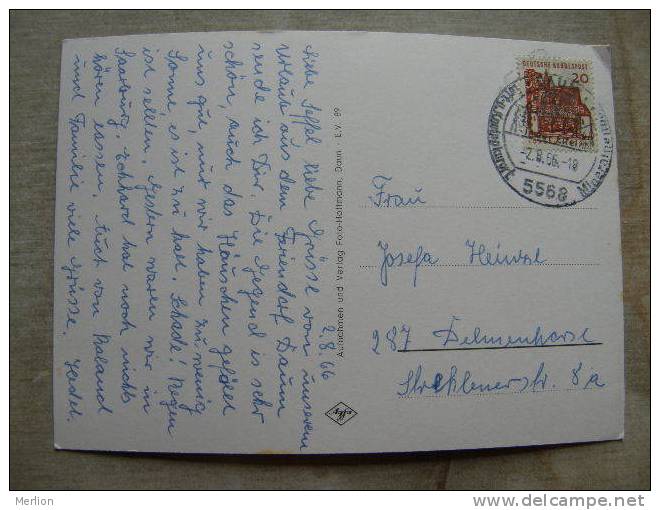 2.8.66
Liebe Seffel, liebe Grüsse von unserem
Urlaub aus dem Feriendorf Daun
sende ich Dir. Die Gegend is sehr
schön, auch das Häuschen gefällt
uns gut, nur wir haben zu wenig
Sonne es ist zu kalt. Schade Regen
ist selten. Gestern waren wir in
Saarburg. Eckhard hat noch nichts
hören lassen. Auch von Roland
und Familie viele Grüsse.
Aufnahmen und Verlag Foto-Hoffmann, Daun E.V. 89
DEUTSCHE BUNDESPOST
20
-2.8.66.-18
5568
Frau
Josefa Heinzel
287 Delmenhorst
str. 8a
Merlion
www.delcampe.net